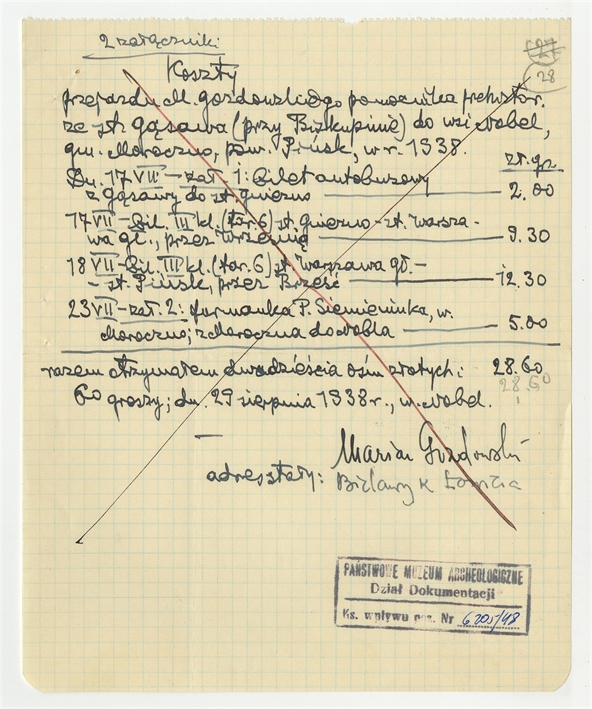 2 załączniki
28
Koszty
przejazdu M. Gozdowskiego pomocnika prehistor.
ze st. Gąsawa (przy Biskupinie) do wsi Nobel,
gm. Moroczno, pow. Pińsk, w r. 1938.
zł. gr
Dn. 17 VII – zał. 1: Bilet autobusowy
z Gąsawy do st. Gniezno 2.00
17 VII – Bil. III kl. (tar. 6) st. Gniezno – st. Warsza-
wa gł., przez Wrześnię 9.30
18 VII – Bil. III kl. (tar. 6) st. Warszawa gł. –
– st. Pińsk, przez Brześć 12.30
23 VII – zał. 2: furmanka P. Siemieniuka, w.
Moroczno; z Moroczna do Nobla 5.00
razem otrzymałem dwadzieścia ośm złotych: 28.60
28.60
60 groszy; dn. 29 sierpnia 1938 r., w. Nobel.
Marian Gozdowski
adres stały: Bielawy k Łowicza
PAŃSTWOWE MUZEUM ARCHEOLOGICZNE
Dział Dokumentacji
Ks. wpływu poz. Nr 6205/48